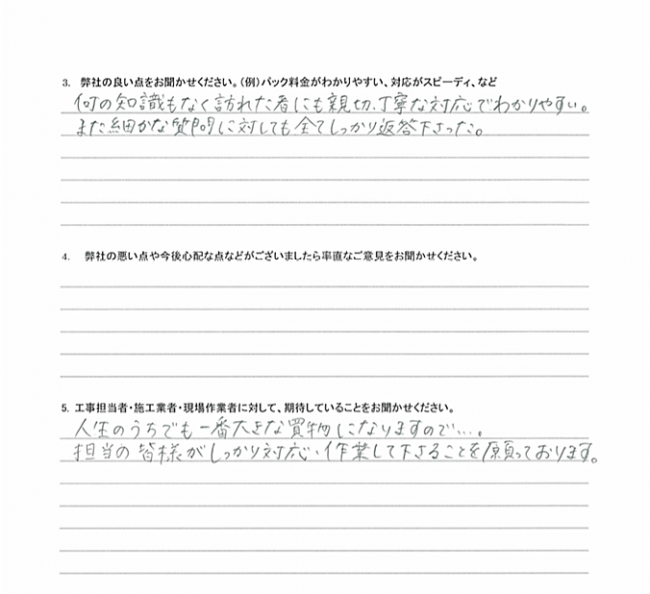 3. 弊社の良い点をお聞かせください。（例）パック料金がわかりやすい、対応がスピーディ、など
何の知識もなく訪れた者にも親切、丁寧な対応でわかりやすい。
また細かな質問に対しても全てしっかり返答下さった。
4. 弊社の悪い点や今後心配な点などがございましたら率直なご意見をお聞かせください。
5. 工事担当者・施工業者・現場作業者に対して、期待していることをお聞かせください。
人生のうちでも一番大きな買物になりますので…。
担当の皆様がしっかり対応、作業して下さることを願っております。